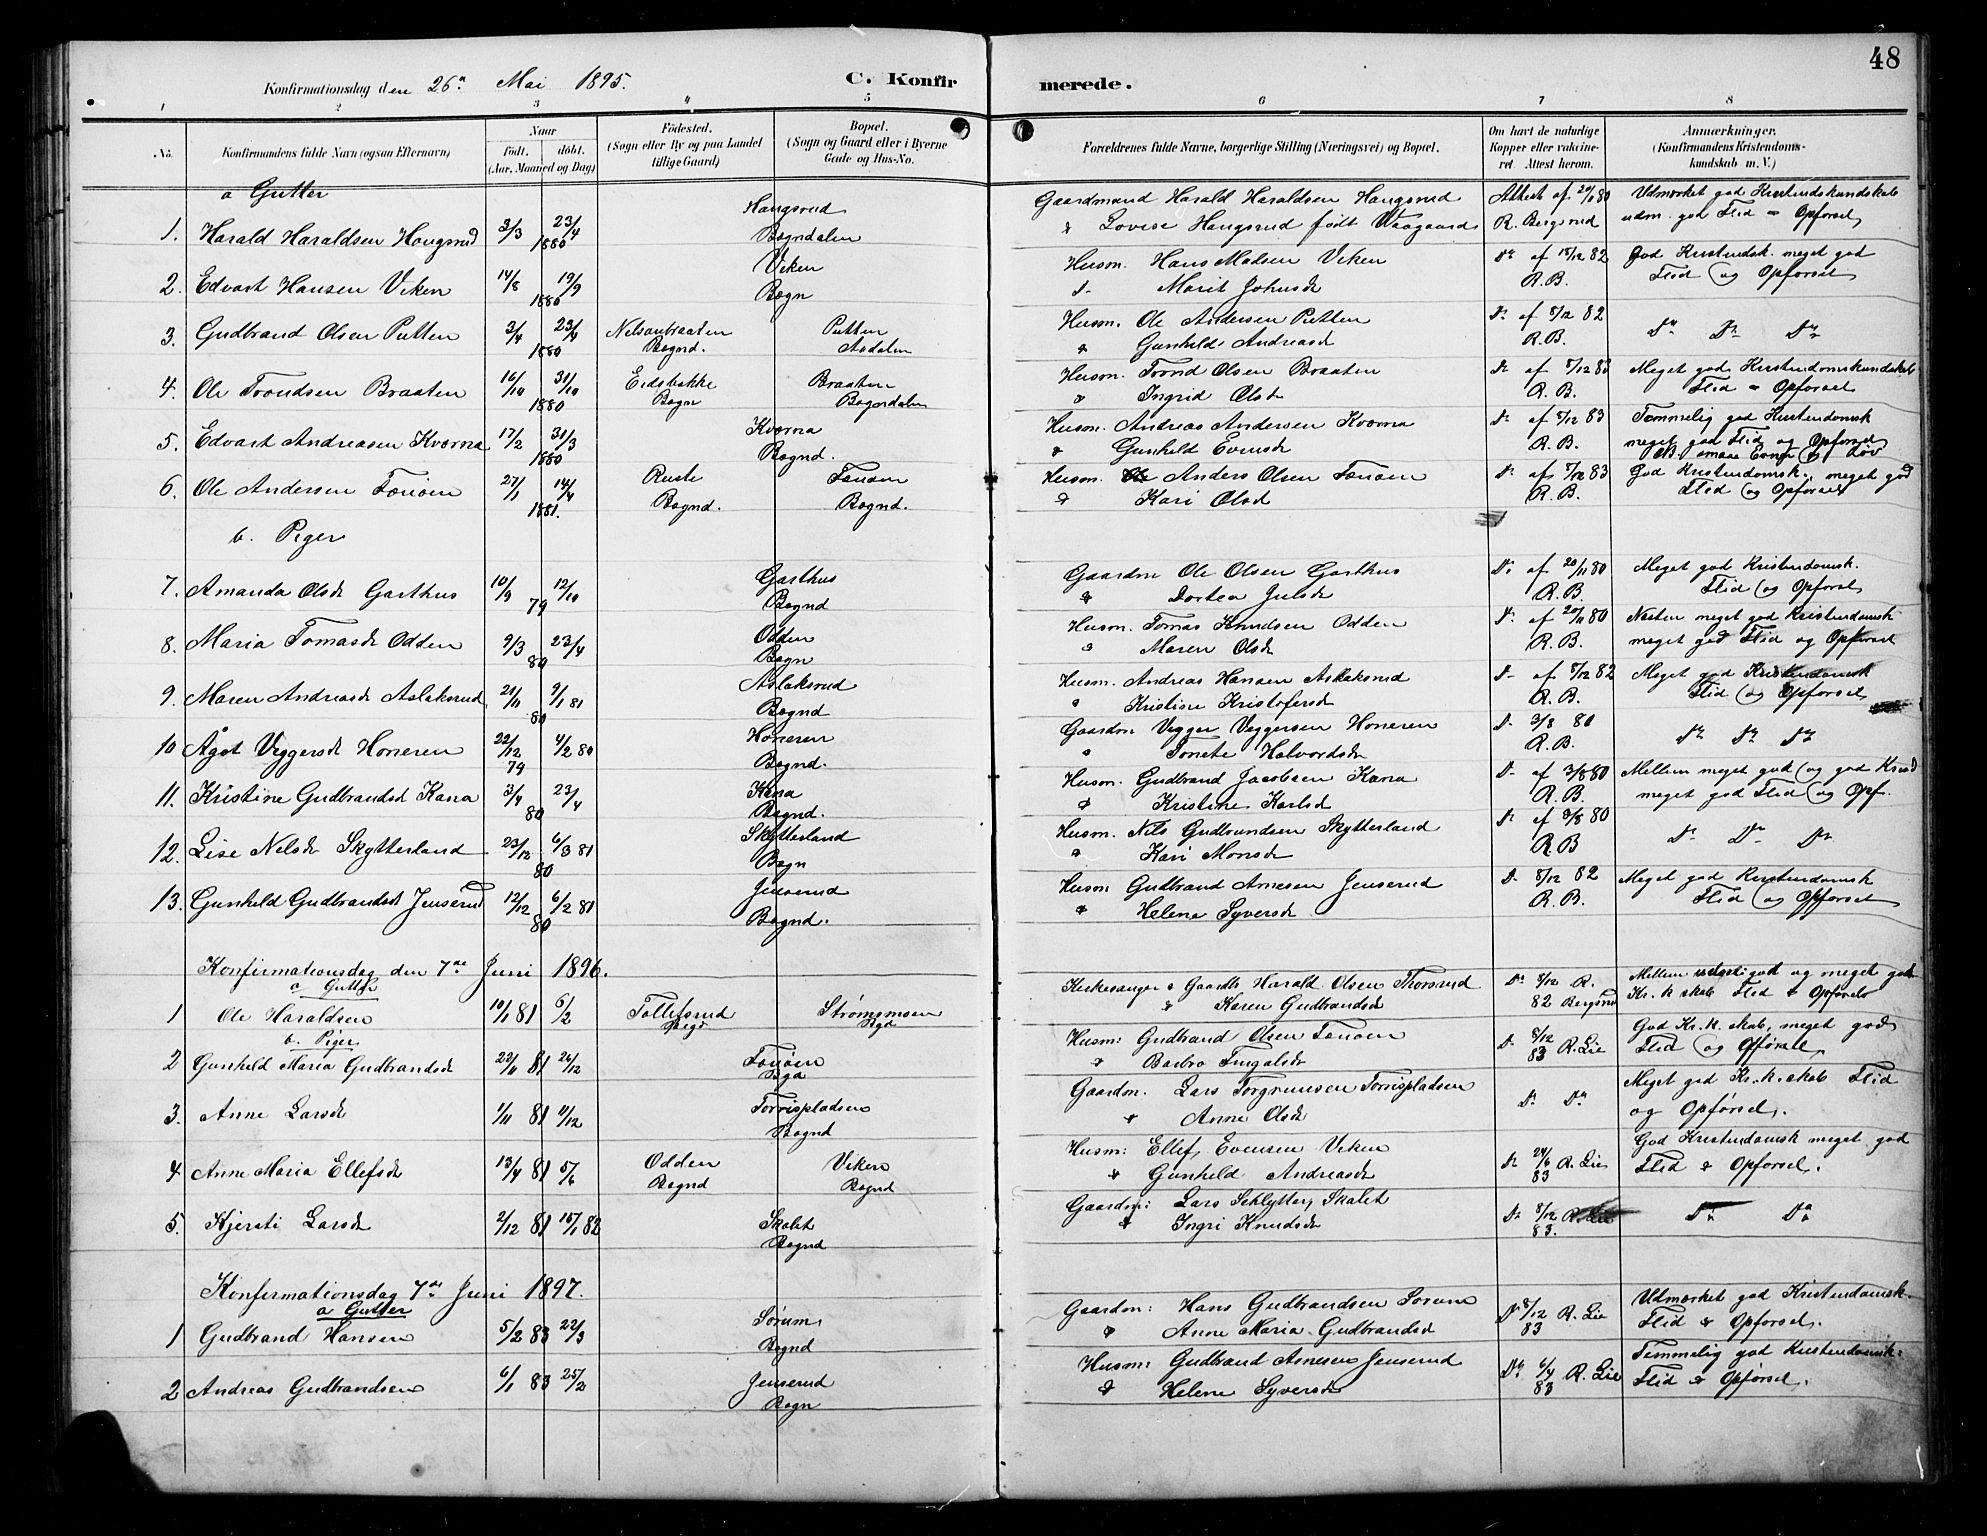 48
Konfirmationsdag den 26n Mai 1895. C. Konfirmerede.
1 2 3 4 5 6 7 8
No. Konfirmandens fulde Navn (ogsaa Efternavn) Naar født, døbt. (Aar, Maaned og Dag) Fødested. (Sogn eller By og paa Landet tillige Gaard) Bopæl. (Sogn og Gaard eller i Byerne Gade og Hus-No. Forældrenes fulde Navne, borgerlige Stilling (Næringsvei) og Bopæl. Om havt de naturlige Kopper eller vaccineret. Attest herom. Anmærkninger. (Konfirmandens Kristendomskundskab m. V.)
a Gutter
1. Harald Haraldsen Haugsrud 3/3 23/4 1880 Haugsrud Bagndalen Gaardmand Harald Haraldsen Haugsrud
Lovise Haugsrud født Attest af 80 R. Bergsrud Udmærket god Kristendskundskab udm. god Flid Opførsel
2. Edvart Hansen Viken 14/8 19/9 1880 Viken Bagn Husm. Hans Madsen Viken
d- Marit Johnsd Do af 15/12 82 R.B. God Kristendsk. meget god Flid og Opførsel
3. Gudbrand Olsen Putten 3/4 23/4 1880 Nilsenbraaten Bagnd. Putten Aadalen Husm. Ole Andersen Putten
Gunhild Andreasd Do af 5/12 82 R.B. Do Do Do
4. Ole Trondsen Braaten 16/10 31/10 1880 Eidsbakke Bagn Braaten Bagndalen Husm. Trond Olsen Braaten
Ingrid Olsd Do af 5/12 83 R.B. Meget god Kristendomskundskab Flid Opførsel
5. Edvart Andreasen Kværna 17/2 31/3 1880 Kværna Bagnd. Husm. Andreas Andersen Kværna
Gunhild Evensd Do af 5/12 83 R.B. Temmelig god Kristendomsk meget god Flid og Opførsel
6. Ole Andersen Fønøen 27/1 14/4 1881. Ruste Bagnd. Fønøen Bagnd. Husm. Anders Olsen Fønøen
Kari Olsd Do af 5/12 83 R.B. God Kristendomsk. meget god Flid og Opførsel
b. Piger
7. Amanda Olsd Garthus 10/9 12/10 79 Garthus Bagnd Gaardm Ole Olsen Garthus
Dortea Juls​d Do af 20/11 80 R.B. Meget god Kristendomsk. Flid og Opførsel
8. Maria Tomasd Odden 9/3 23/4 80 Odden Bagn Husm. Tomas Knudsen Odden
Maren Olsd Do af 20/11 80 R.B. Næsten meget god Kristendomsk meget god Flid og Opførsel
9. Maren Andreasd Aslaksrud 21/11 9/1 81 80 Aslaksrud Bagnd Husm. Andreas Hansen Aslaksrud
Kristine Kristofersd D- af 5/12 82 R.B. Meget god Kristendomsk Flid og Opførsel
10 Ågot Viggersd Honeren 22/12 4/2 80 79 Honeren Bagnd. Gaardm Vigger Viggersen Honeren
Tonete Halvordsd D- 3/8 80 R.B. Do Do Do
11. Kristine Gudbrandsd Kana 3/4 23/4 80 Kana Bagnd. Husm. Gudbrand Jacobsen Kana
Kristine Karlsd D- af 3/8 80 R.B. Mellem meget god og god Krisd meget god Flid og Opf.
12. Lise Nilsd Skytterland 23/12 6/3 81 80 Skytterland Bagn Husm. Nils Gudbrandsen Skytterland
Kari Monsd Do af 3/8 80 R.B Do Do Do
13. Gunhild Gudbrandsd Jenserud 12/12 6/2 81 80 Jenserud Bagnd. Husm Gudbrand Arnesen Jenserud
Helene Syversd D- 5/12 82 R.B. Meget god Kristendomsk Flid og Opførsel
Konfirmationsdag den 7de Juni 1896.
a Gutter
1 Ole Haraldsen 10/1 81 6/2 Tollefsrud Bagd Strømsmoen Bgd Kirkesanger & Gaardb Harald Olsen Thorsrud
Karen Gudbrandsd Do 8/12 82 R. Bergsrud Mellem udm god og meget god Kr.k.skab Flid & Opførsel
b. Piger
2 Gunhild Maria Gudbrandsd 22/11 81 26/12 Fønøen Bgd Husm: Gudbrand Olsen Fønøen
Barbro Fingalsd D- 8/12 83 R. Lie God Kr.k.skab, meget god Flid og Opførsel,
3. Anne Larsd 1/11 81 11/12 Torrispladsen Bagnd Gaardm. Lars Torgrimsen Torrispladsen
Anne Olsd Do Do Meget god Kr.k.skab Flid og Opførsel.
4 Anne Maria Ellefsd 13/4 81 5/6 Odden Bagnd Viken Bagnd Husm: Ellef Evensen Viken
Gunhild Andreasd Do 24/6 83 R. Lie God Kristendomsk meget god Flid & Opførsel.
5. Kjersti Larsd 2/12 81 15/1 82 Skalet Bagnd Gaardm: Lars Schlytter, Skalet
Ingri Knudsd Do 8/12 83. R. Lie Do Do
Konfirmationsdag 7de Juni 1897.
a Gutter
1 Gudbrand Hansen 5/2 83 22/3 Sørum Bagnd Gaardm: Hans Gudbrandsen Sørum
Anne Maria Gudbrandsd Do 8/12 83 R. Lie Udmærket god Kristendomsk. Flid & Opførsel.
2 Andreas Gudbrandsen 6/1 83 25/2 Jenserud Bagn Husm: Gudbrand Arnesen Jenserud
Helene Syversd Do 6/4 83 R. Lie Temmelig god Kristendomsk: Flid & Opførsel.